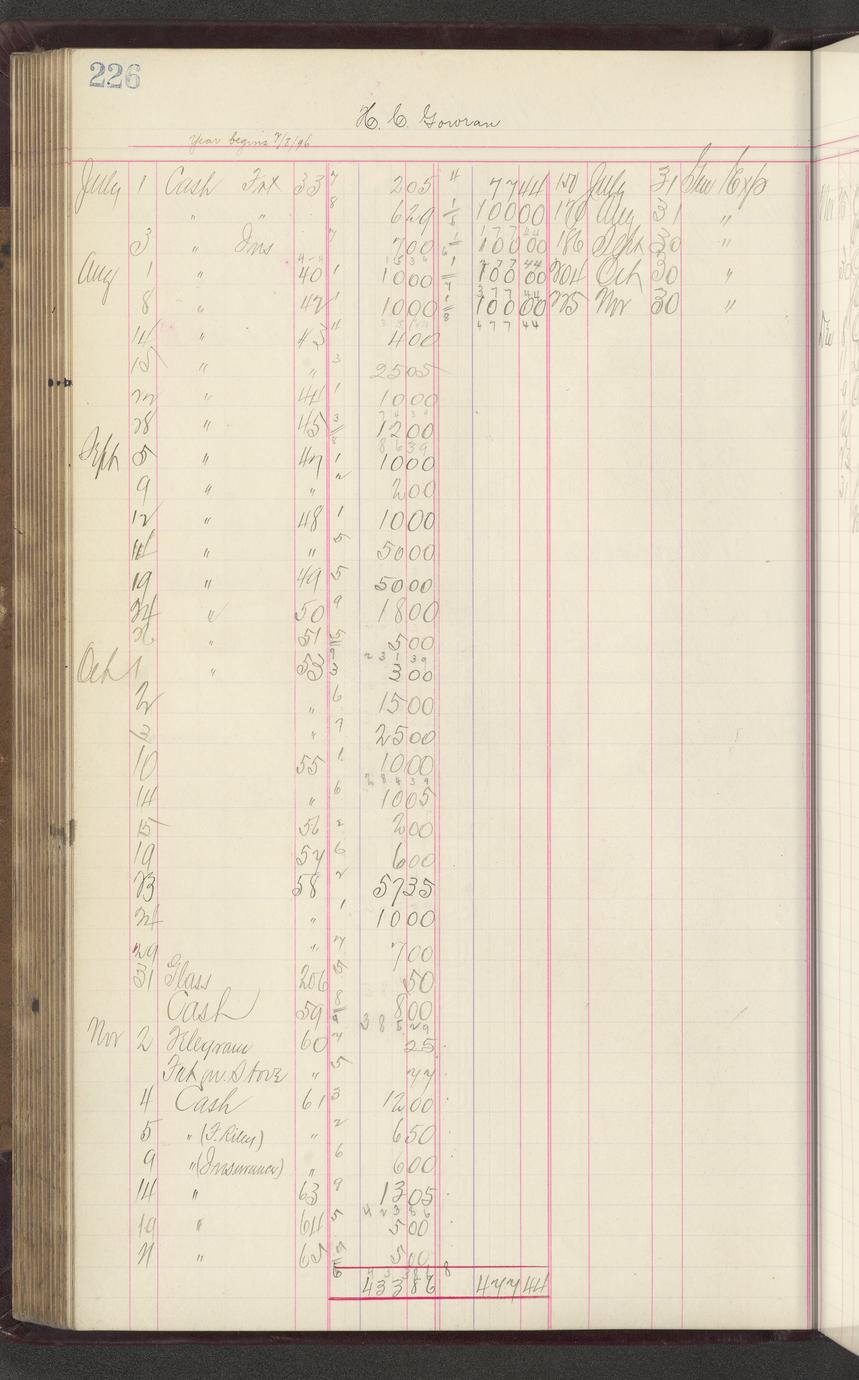 226
H. C. Gowran
Year begins 7/1/96
July 1 Cash Frt 33 7 2 05 4 77 44 150 July 31 Gen Exp
" " 8 6 29 100 00 170 Aug 31 "
3 " Ins 7 7 00 100 00 186 Sept 30 "
Aug 1 " 40 1 10 00 100 00 204 Oct 30 "
8 " 42 1 10 00 100 00 225 Nov 30 "
11 " 43 4 4 00 477 44
15 " " 3 25 05
22 " 44 1 10 00
28 " 45 3 12 00
Sept 5 " 47 1 10 00
9 " " 2 2 00
12 " 48 1 10 00
14 " " 5 50 00
19 " 49 5 50 00
24 " 50 9 18 00
26 " 51 5 5 00
Oct 1 " 53 3 3 00
2 " 6 15 00
3 " 7 25 00
10 55 1 10 00
14 " 6 10 05
15 56 2 2 00
19 57 6 6 00
23 58 2 57 35
24 " 1 10 00
29 " 7 7 00
31 Glass 206 5 50
Cash 59 8 8 00
Nov 2 Telegram 60 7 25
Frt on Stove " 5 77
4 Cash 61 3 12 00
5 " (F. Riley) " 2 6 50
9 " (Insurance) " 6 6 00
14 " 63 9 13 05
19 " 64 5 5 00
21 " 65 5 00
433 86 477 44